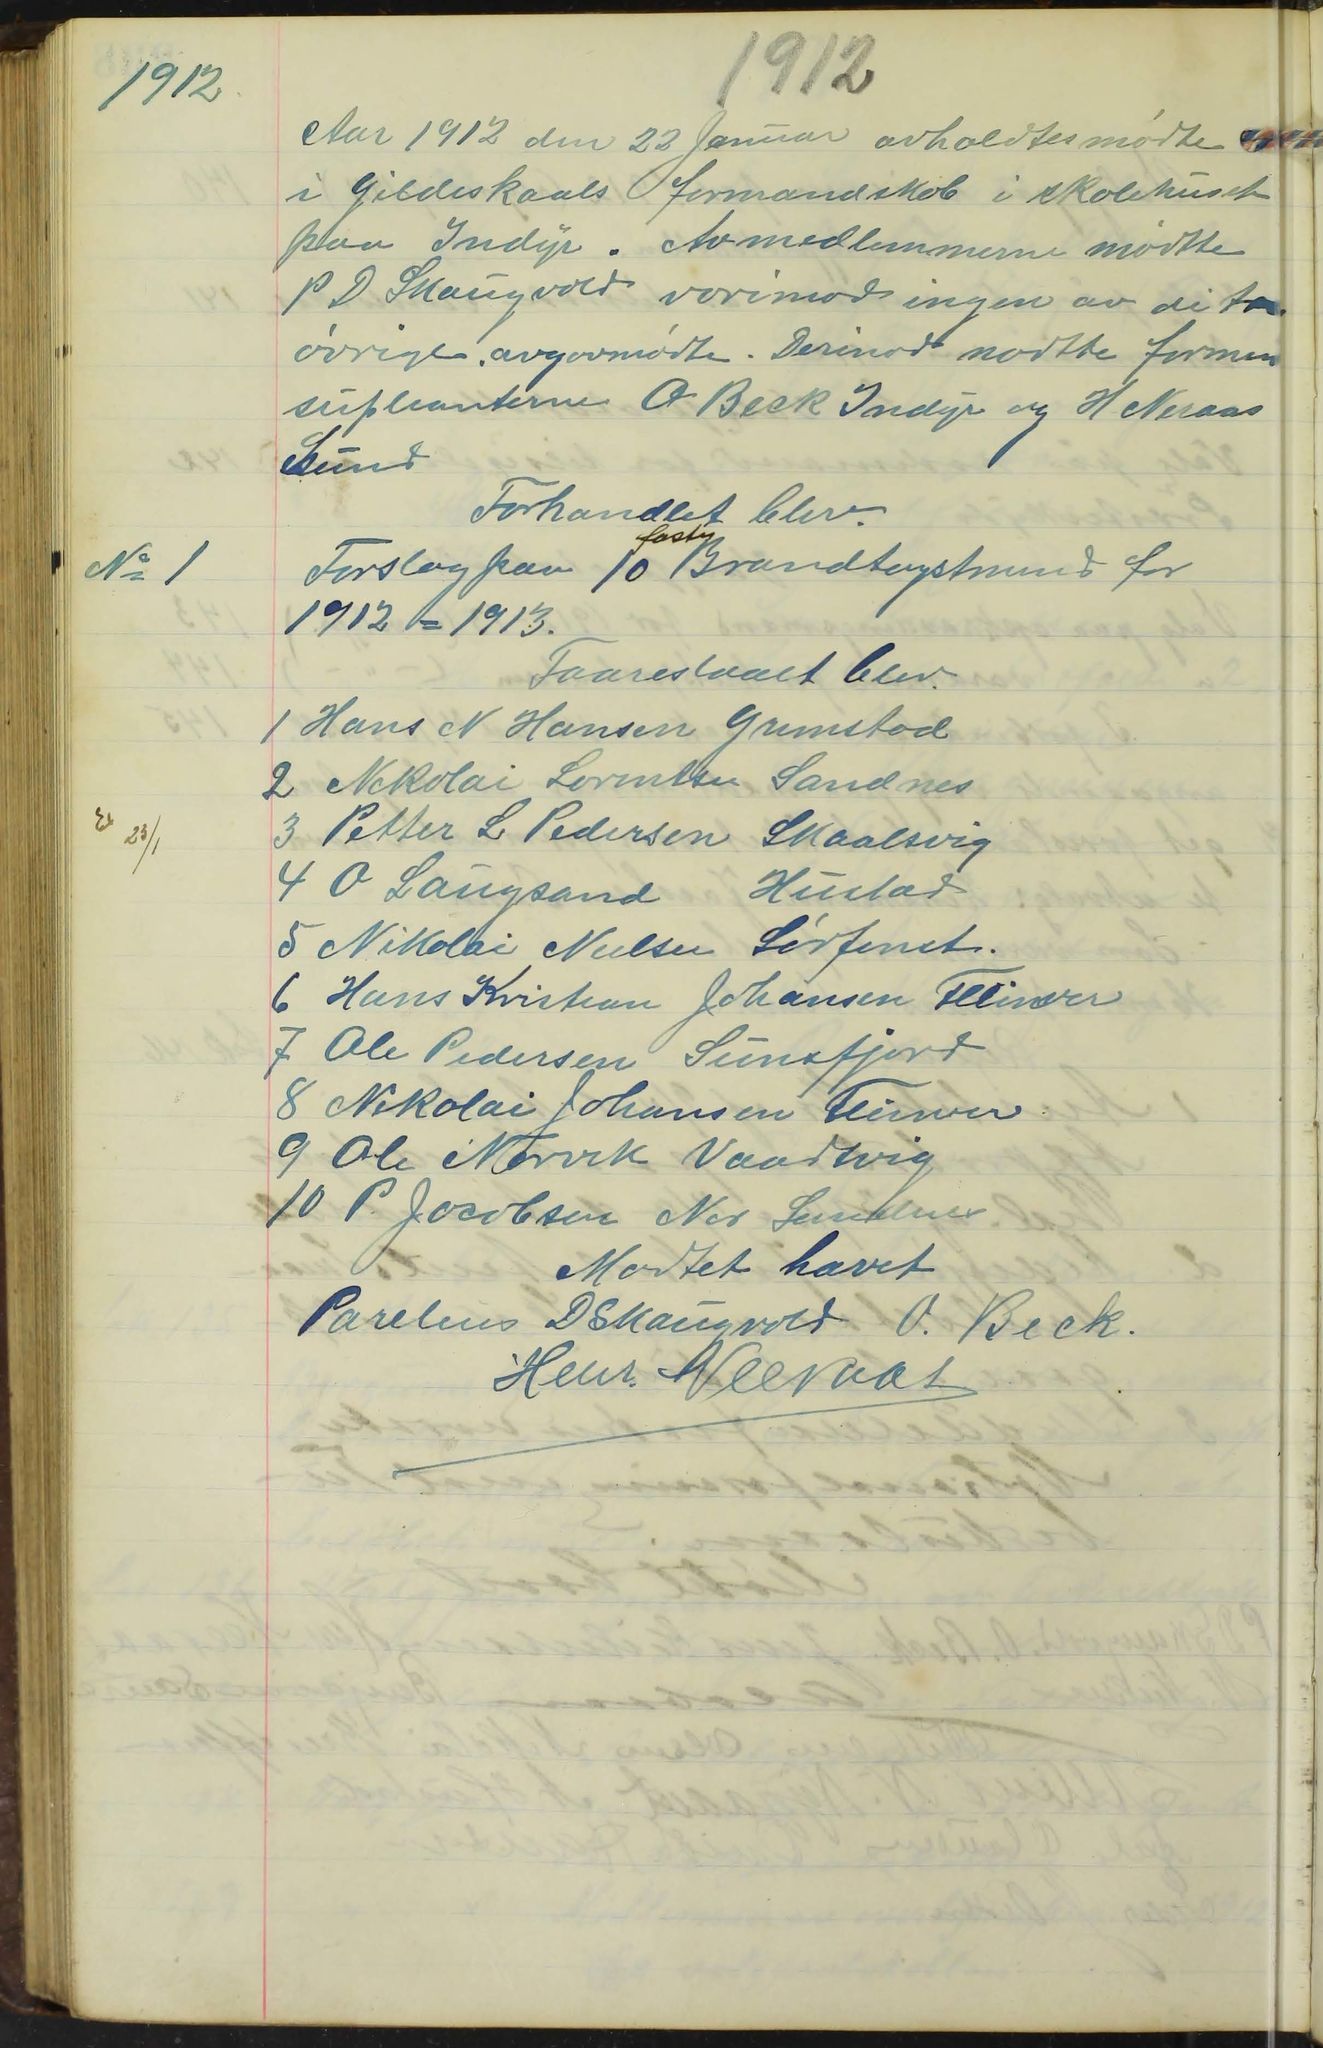 1912
1912.
Aar 1912 den 22 Januar avholdtes mødte
i Gildeskaals formandskab i skolehuset
paa Indyr. Av medlemmerne mødte
P D Skaugvold vorimod ingen av de
øvrige avgavmødte. Derimod mødte
supleanterne O Beck Indyr og H Neraas
Sund
Forhandlet blev.
No 1
Forslag paa 10 faste Brandtagstmend for
1912 = 1913.
Faareslaaet blev.
1 Hans N Hansen Grimstad
2 Nikolai Lorentsen Sandnes
Ex 23/1
3 Petter L Pedersen Skaalsvig
4 O Laugsand Hustad
5 Nikolai Nielsen Sørfinset.
6 Hans Kristian Johansen Fleinvær
7 Ole Pedersen Sundsfjord
8 Nikolai Johansen Fleinvær
9 Ole Narvik Vaadtvig
10 P. Jacobsen Nor Sandnes
Mødtet hævet
Parelius DSkaugvold O. Beck.
Henr. Neeraas